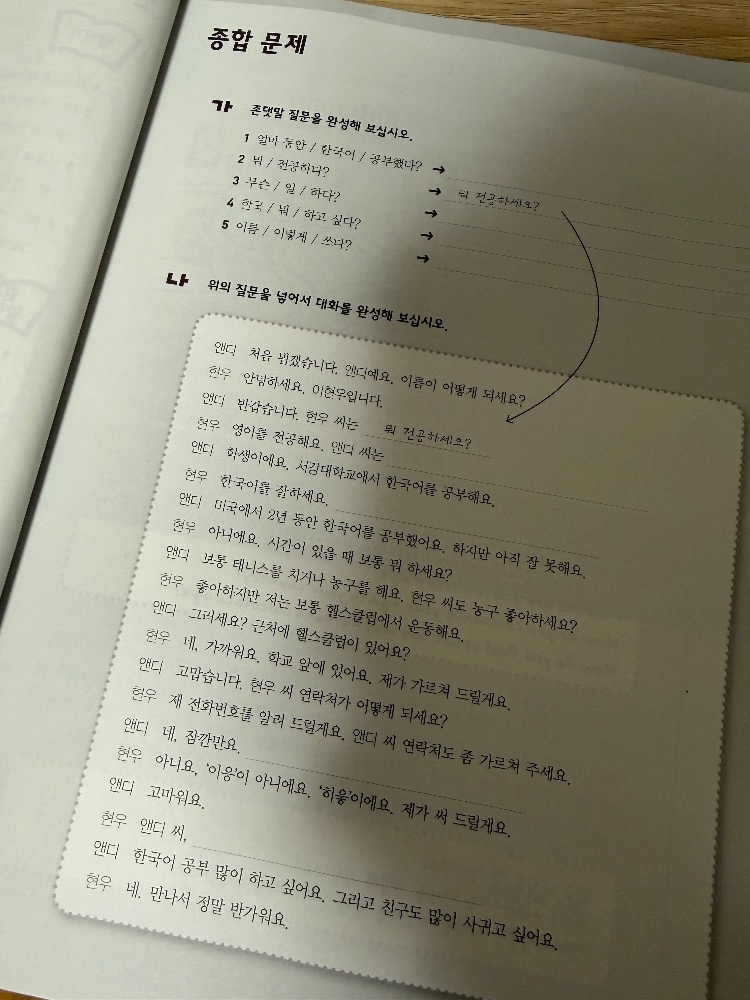 종합 문제
가 존댓말 질문을 완성해 보십시오.
1 얼마 동안 / 한국어 / 공부했다? →
2 뭐 / 전공하다? → 뭐 전공하세요?
3 무슨 / 일 / 하다? →
4 한국 / 뭐 / 하고 싶다? →
5 이름 / 이렇게 / 쓰다? →
나 위의 질문을 넣어서 대화를 완성해 보십시오.
앤디 처음 뵙겠습니다. 앤디예요. 이름이 어떻게 되세요?
현우 안녕하세요. 이현우입니다.
앤디 반갑습니다. 현우 씨는 뭐 전공하세요?
현우 영어를 전공해요. 앤디 씨는
앤디 학생이에요. 서강대학교에서 한국어를 공부해요.
현우 한국어를 잘하세요.
앤디 미국에서 2년 동안 한국어를 공부했어요. 하지만 아직 잘 못해요.
현우 아니에요. 시간이 있을 때 보통 뭐 하세요?
앤디 보통 테니스를 치거나 농구를 해요. 현우 씨도 농구 좋아하세요?
현우 좋아하지만 저는 보통 헬스클럽에서 운동해요.
앤디 그러세요? 근처에 헬스클럽이 있어요?
현우 네, 가까워요. 학교 앞에 있어요. 제가 가르쳐 드릴게요.
앤디 고맙습니다. 현우 씨 연락처가 어떻게 되세요?
현우 제 전화번호를 알려 드릴게요. 앤디 씨 연락처도 좀 가르쳐 주세요.
앤디 네, 잠깐만요.
현우 아니요, '이응'이 아니에요. '히읗'이에요. 제가 써 드릴게요.
앤디 고마워요.
현우 앤디 씨,
앤디 한국어 공부 많이 하고 싶어요. 그리고 친구도 많이 사귀고 싶어요.
현우 네. 만나서 정말 반가워요.